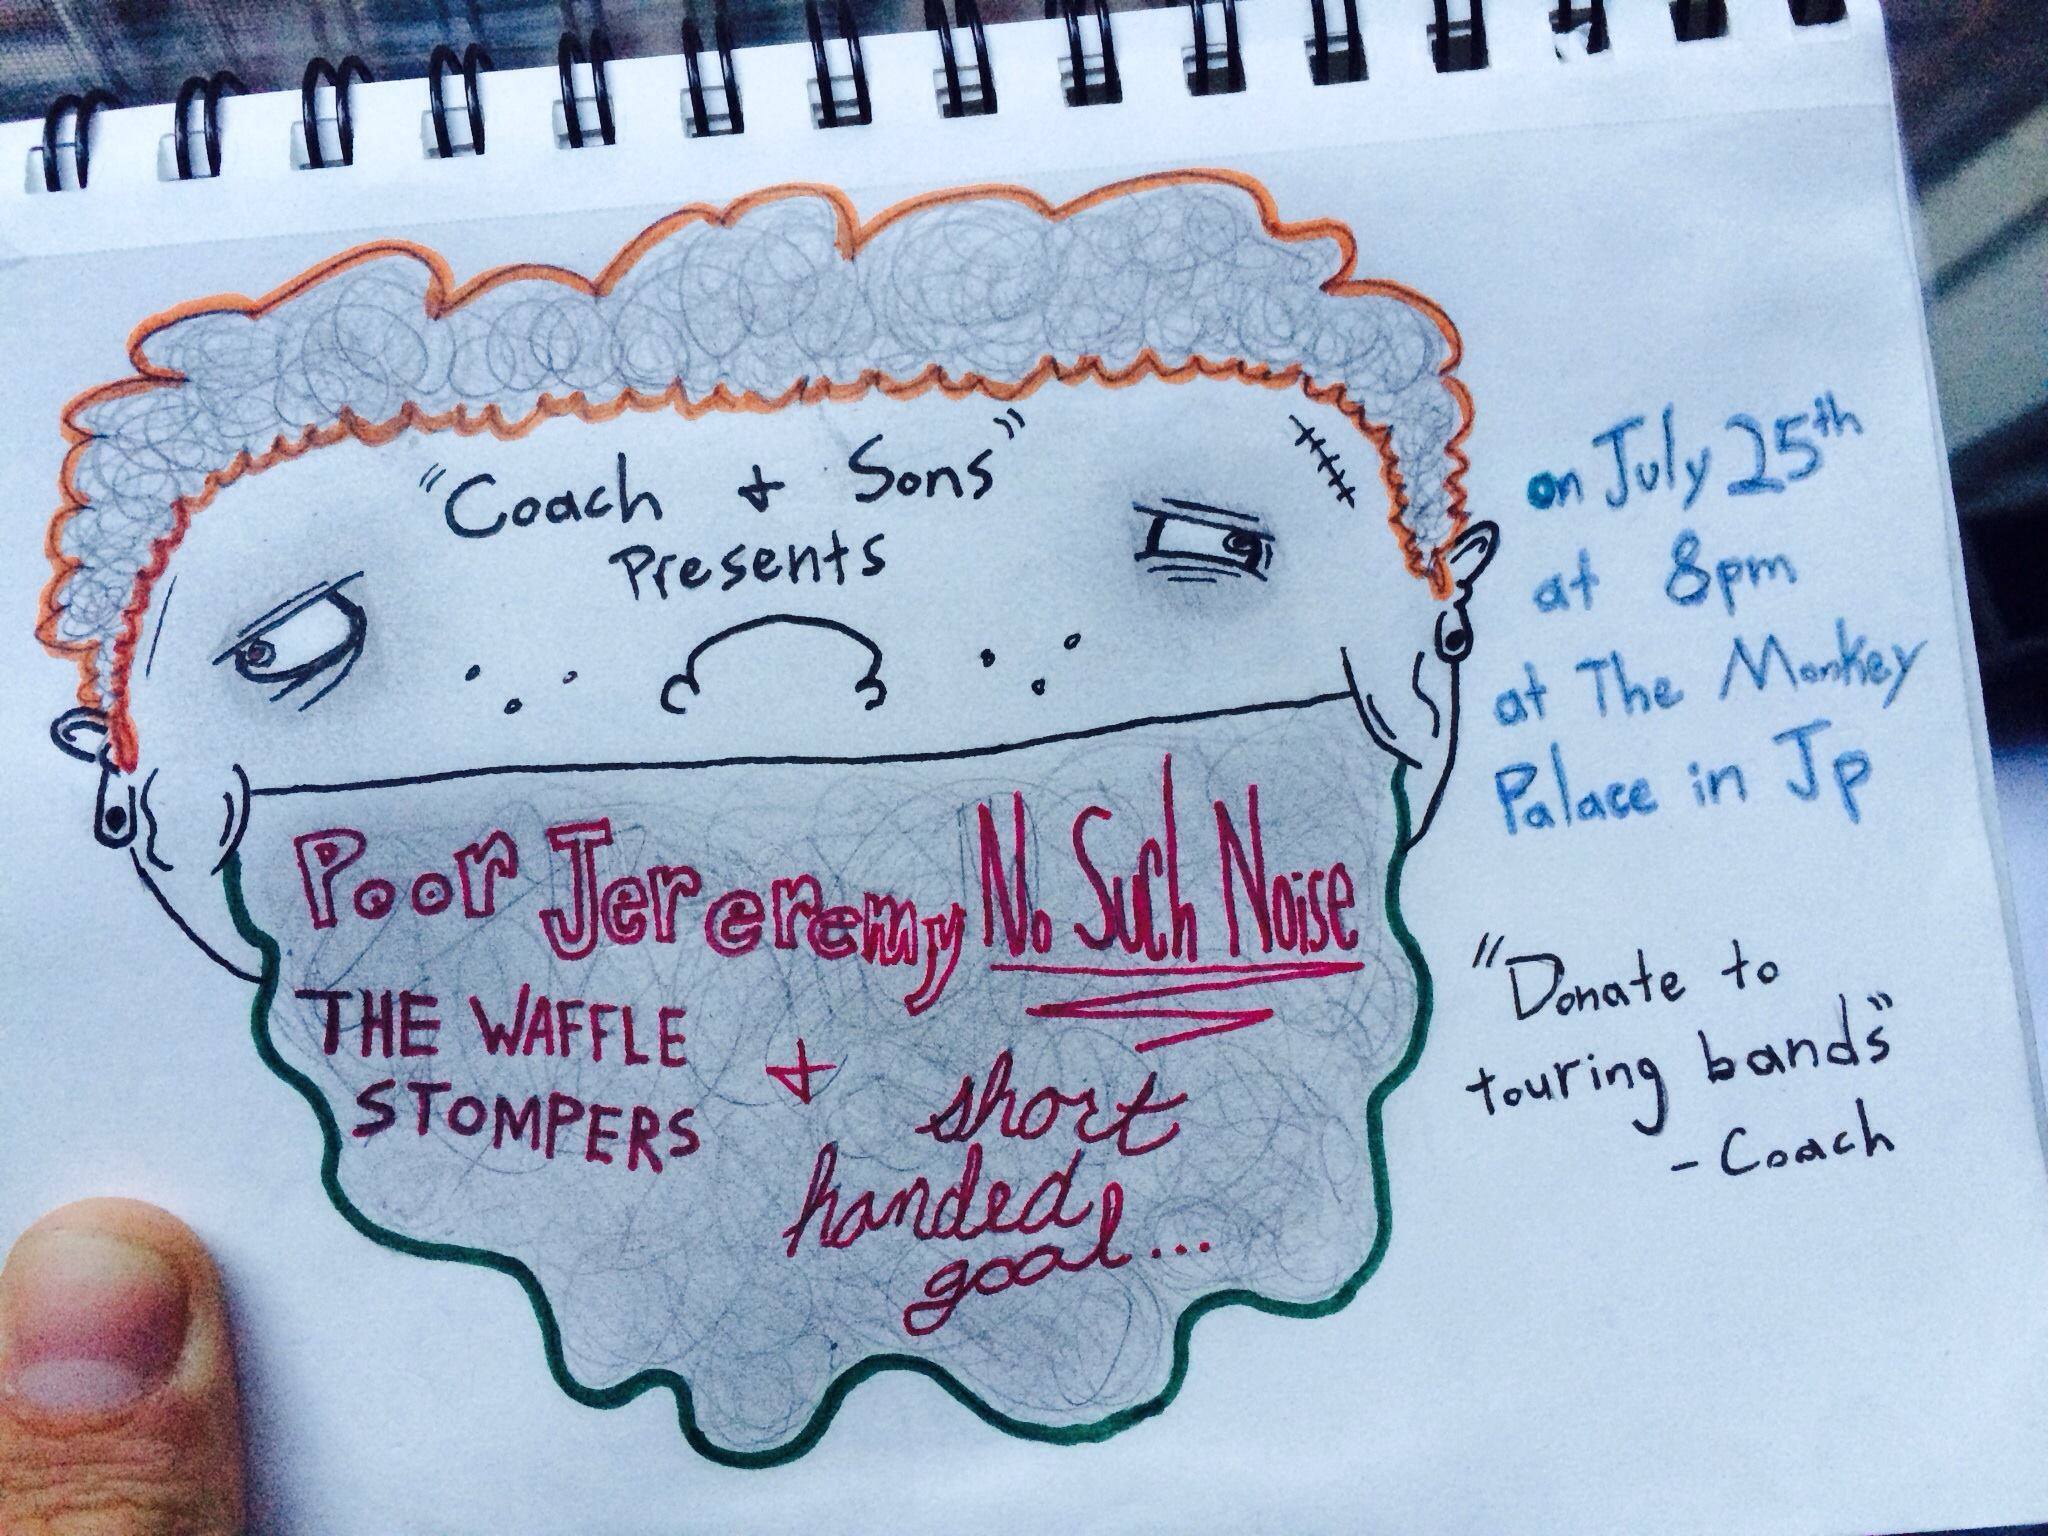 "Coach + Sons"
Presents
Poor Jereremy No Such Noise
THE WAFFLE
STOMPERS
+
short
handed
goal...
on July 25th
at 8pm
at The Monkey
Palace in Jp
"Donate to
touring bands"
- Coach